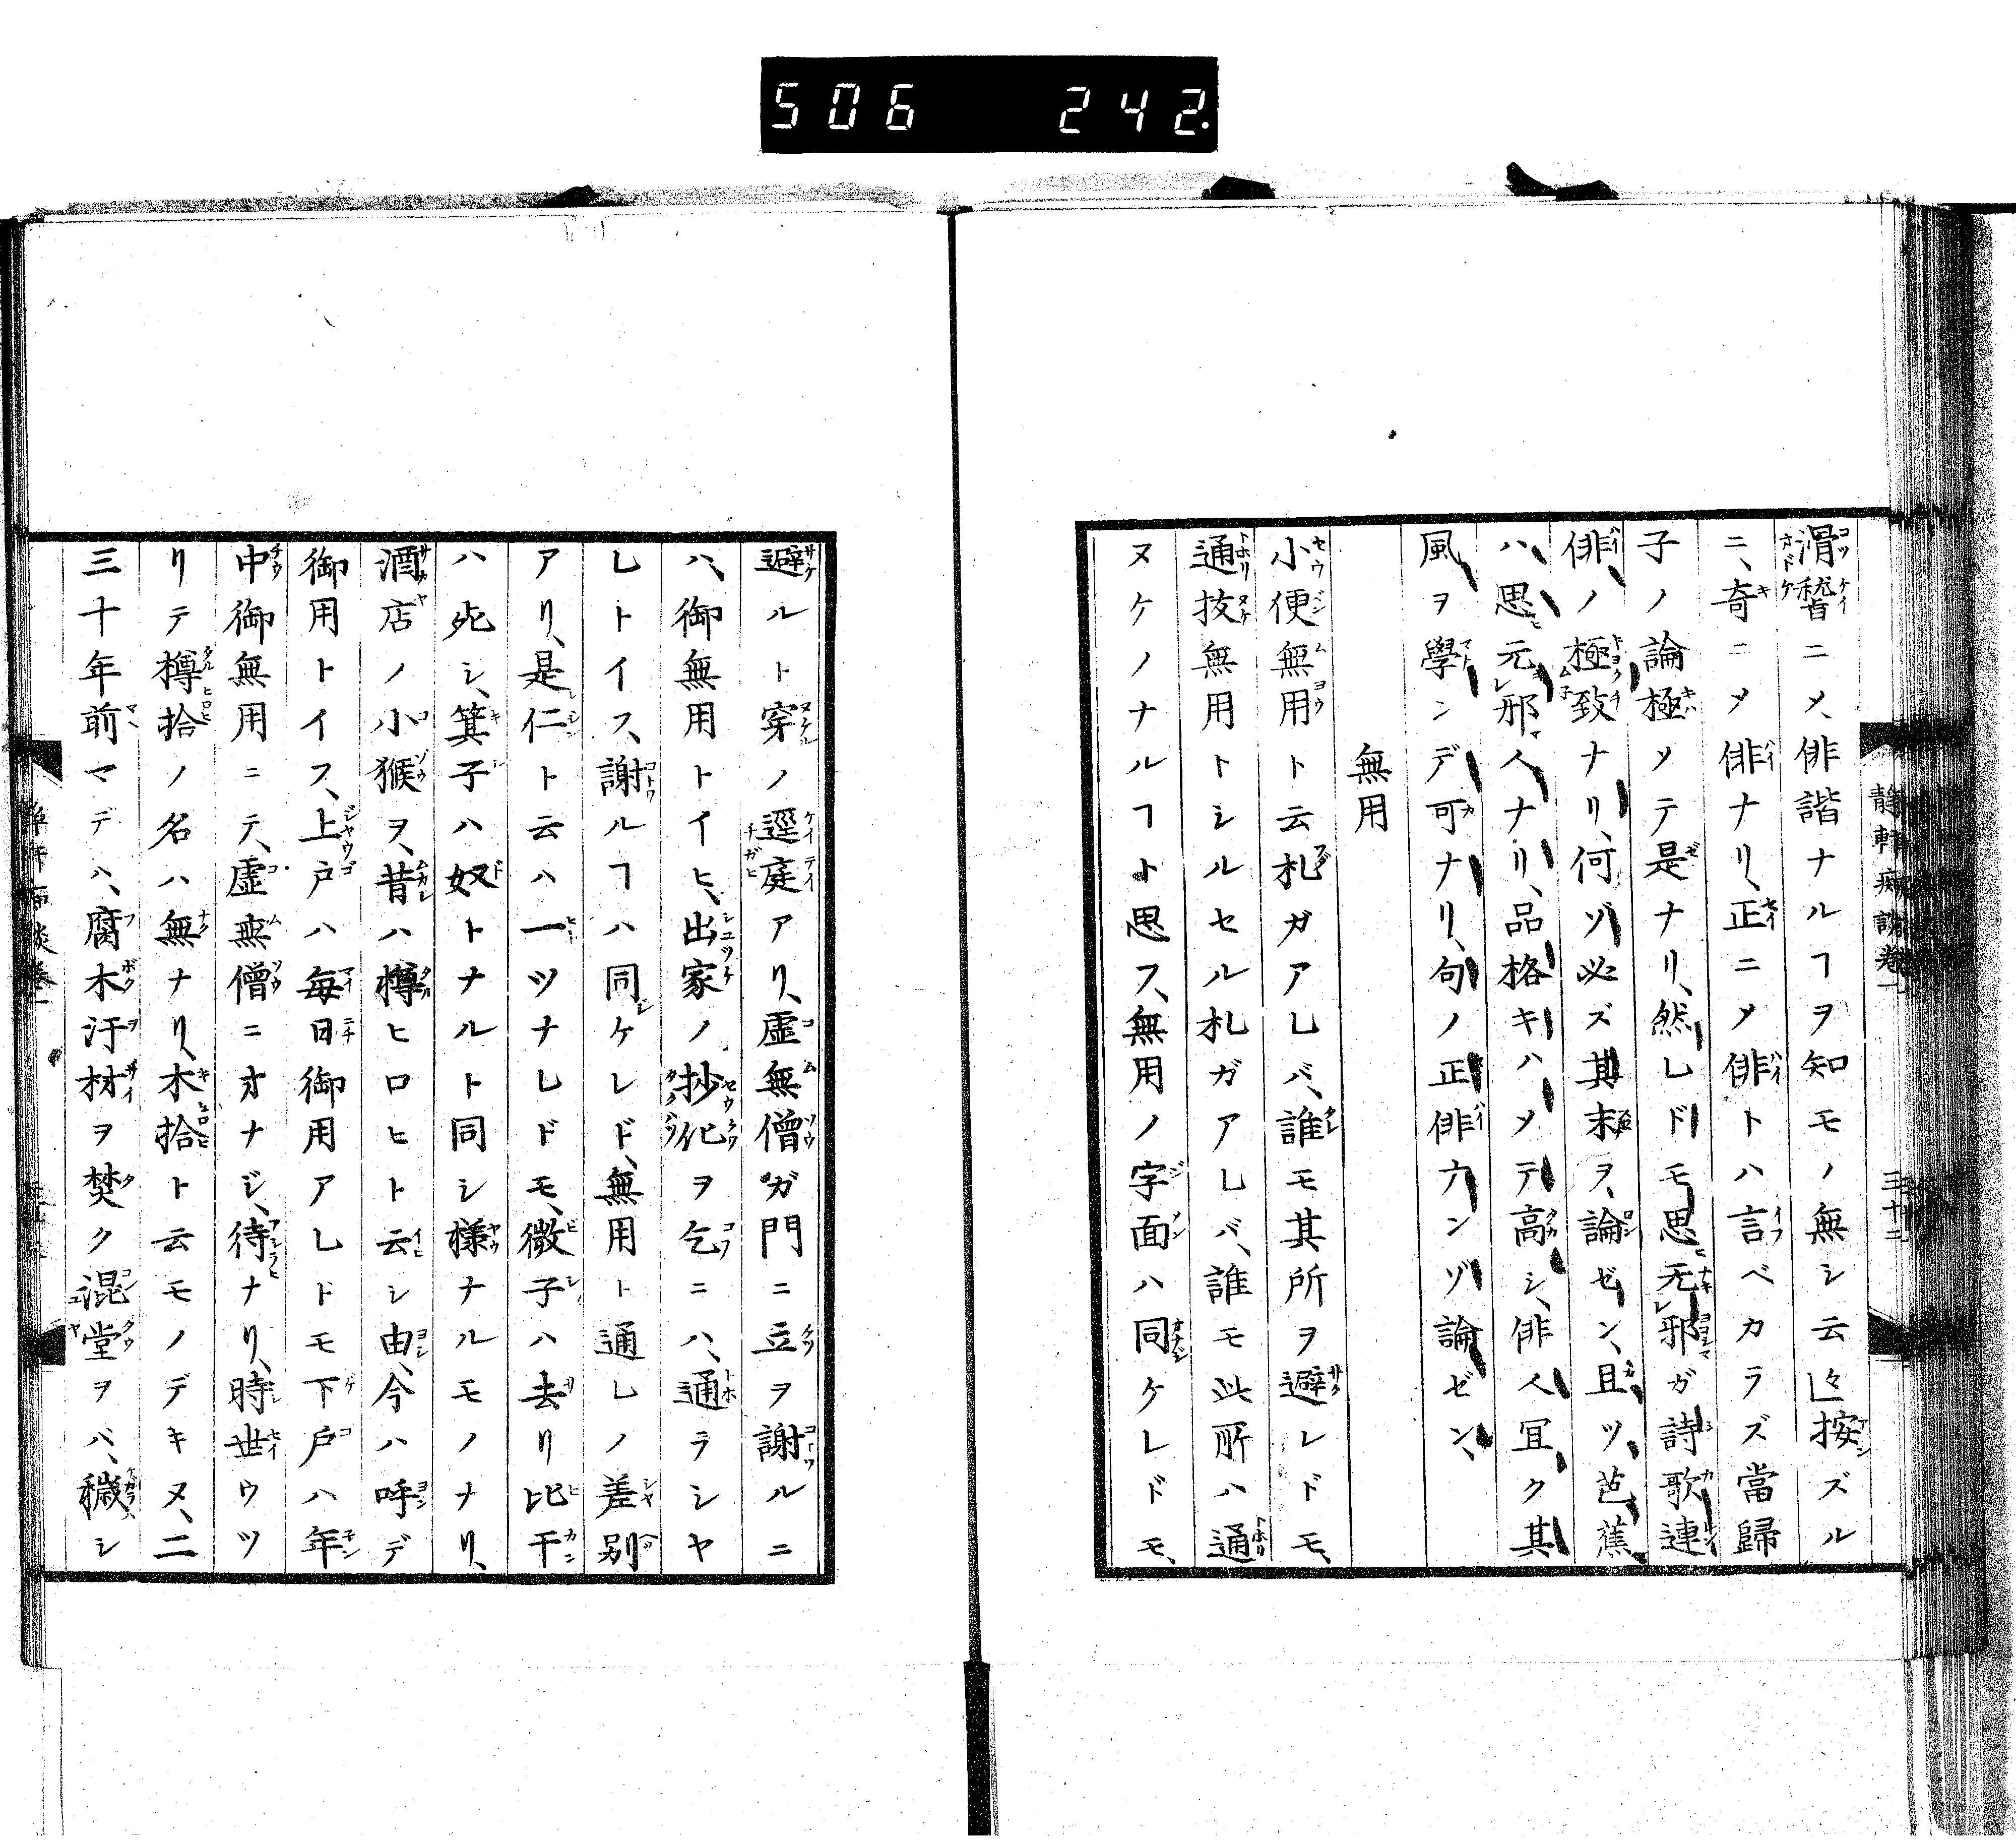 506 242.
静軒痴談卷一
三十二
滑稽ニメ、俳諧ナルヿヲ知モノ無シ云々」按ズル
ニ、奇ニメ俳ナリ、正ニメ俳トハ言ベカラズ當歸
子ノ論極メテ是ナリ、然レドモ思无邪ガ詩歌連
俳ノ極致ナリ、何ゾ必ズ其末ヲ、論ゼン、且ツ、芭蕉
ハ、思元邪人ナリ、品格キハメテ高シ、俳人冝ク其
風ヲ學ンデ可ナリ、句ノ正俳ナンゾ論ゼン、
無用
小便無用ト云札ガアレバ、誰モ其所ヲ避レドモ、
通技無用トシルセル札ガアレバ、誰モ此所ハ通
ヌケノナルヿト思フ、無用ノ字面ハ同ケレドモ、
避ルト穿ノ逕庭アリ、虚無僧ガ門ニ立ヲ謝ルニ
ハ、御無用トイヒ、出家ノ抄化ヲ乞ニハ、通ラシヤ
レトイス、謝ルヿハ同ケレド、無用ト通レノ差別
アリ、是仁ト云ハ一ツナレドモ、微子ハ去リ比干
ハ死シ、箕子ハ奴トナルト同シ様ナルモノナリ、
酒店ノ小猴ヲ、昔ハ樽ヒロヒト云シ由、今ハ呼デ
御用トイフ、上戸ハ毎日御用アレドモ下戸ハ年
中御無用ニテ、虚無僧ニオナジ、待ナリ、時世ウツ
リテ樽拾ノ名ハ無ナリ、木拾ト云モノデキヌ、二
三十年前マデハ、腐木汙材ヲ焚ク混堂ヲバ、穢シ